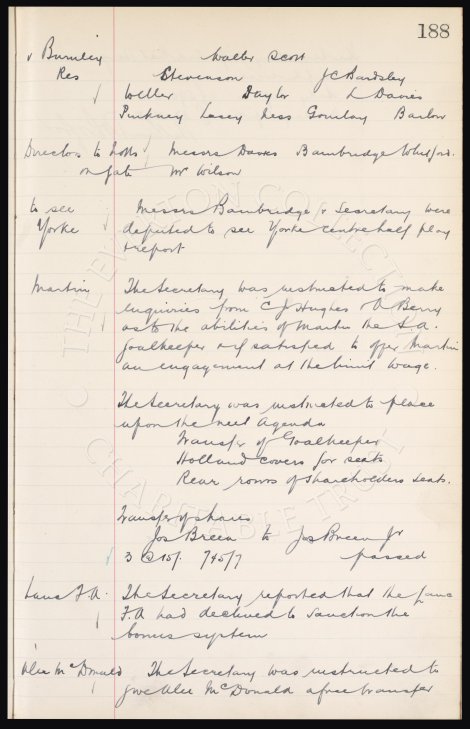 188
v Burnley Walter Scott
Res Stevenson J C Bardsley
Weller Taylor L Davies
Pinkney Lacey Hess Gourlay Barlow
Directors to Notts Messrs Davies Bainbridge Whitford.
on gate Mr Wilson
to see Messrs Bainbridge & Secretary were
Yorke deputed to see Yorke centre half play
& report
Martin The Secretary was instructed to make
enquiries from C J Hughes & A Berry
as to the abilities of Martin the S.A.
Goalkeeper & if satisfied to offer Martin
an engagement at the limit wage.
The Secretary was instructed to place
upon the next Agenda
Transfer of Goalkeeper
Holland covers for seats
Rear rows of shareholders seats.
Transfer of shares
Jos Breen to Jos Breen Jr
3 @ 10/. 745/7 passed
Lancs F.A. The Secretary reported that the Lanc
F.A had declined to sanction the
bonus system
Alec McDonald The Secretary was instructed to
give Alec McDonald a free transfer
THE EVERTON COLLECTION
CHARITABLE TRUST